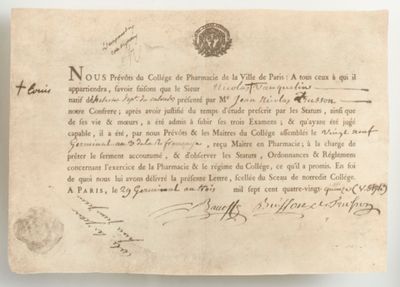 + Louis
NOUS Prévôts du Collége de Pharmacie de la Ville de Paris: A tous ceux à qui il
appartiendra, savoir faisons que le Sieur Nicolas Vauquelin
natif présenté par Me Jean Nicolas Trusson
notre Confrere; après avoir justifié du temps d'étude prescrit par les Statuts, ainsi que
de ses vie & mœurs, a été admis à subir ses trois Examens, & qu'ayant été jugé
capable, il a été, par nous Prévôts & les Maitres du Collége assemblés le Vingt neuf
Germinal an 3e de la R. française, reçu Maitre en Pharmacie; à la charge de
prêter le serment accoutumé, & d'observer les Statuts, Ordonnances & Réglemens
concernant l'exercice de la Pharmacie & le régime du Collége, ce qu'il a promis. En foi
de quoi nous lui avons délivré la présente Lettre, scellée du Sceau de notredit Collége.
A PARIS, le 29 Germinal an trois mil sept cent quatre-vingt- quinze (V. Style)
Trusson